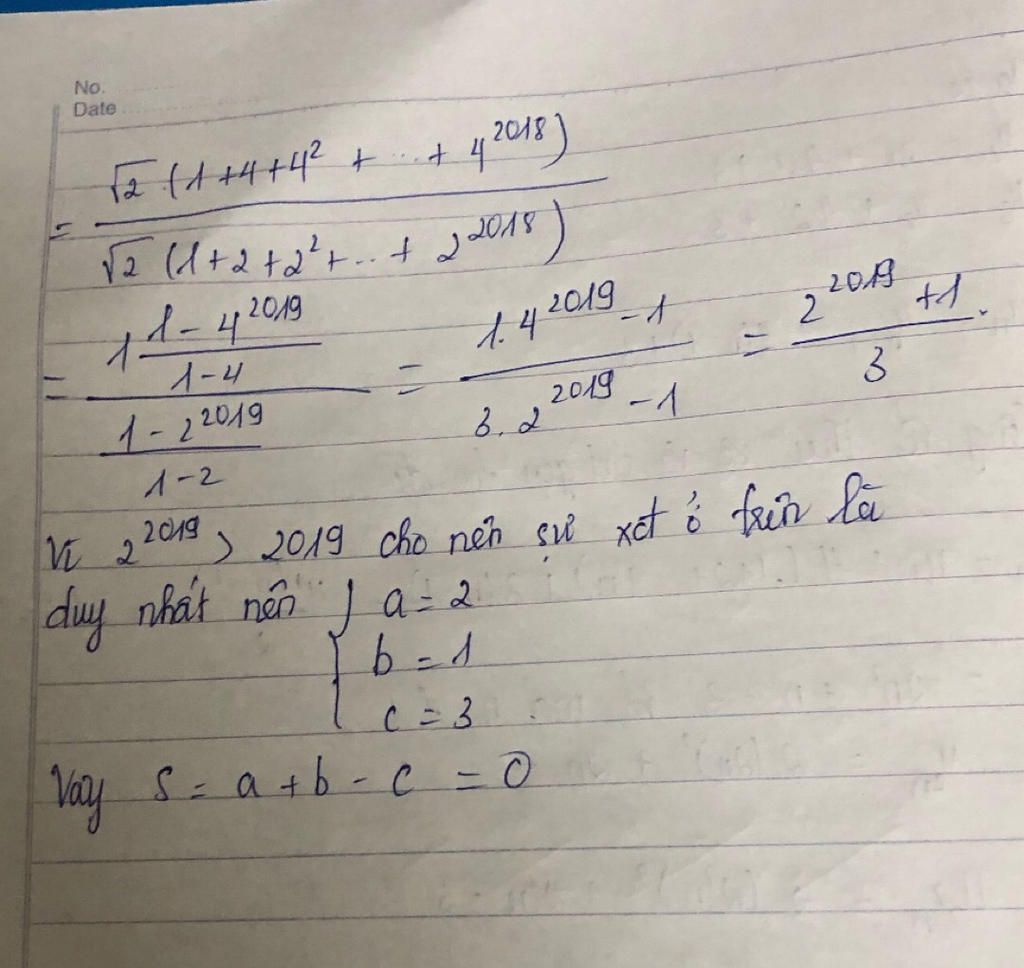 No.
Date
= √2 (1+4+4² + ... + 4^2018) / √2 (1+2+2²+...+ 2^2018)
= (1 (1-4^2019)/(1-4)) / ((1-2^2019)/(1-2)) = (1.4^2019 - 1) / (3.2^2019 - 1) = (2^2019 +1) / 3.
Vì 2^2019 > 2019 cho nên sự xét ở trên là
duy nhất nên { a = 2
b = 1
c = 3
Vậy S = a + b - c = 0